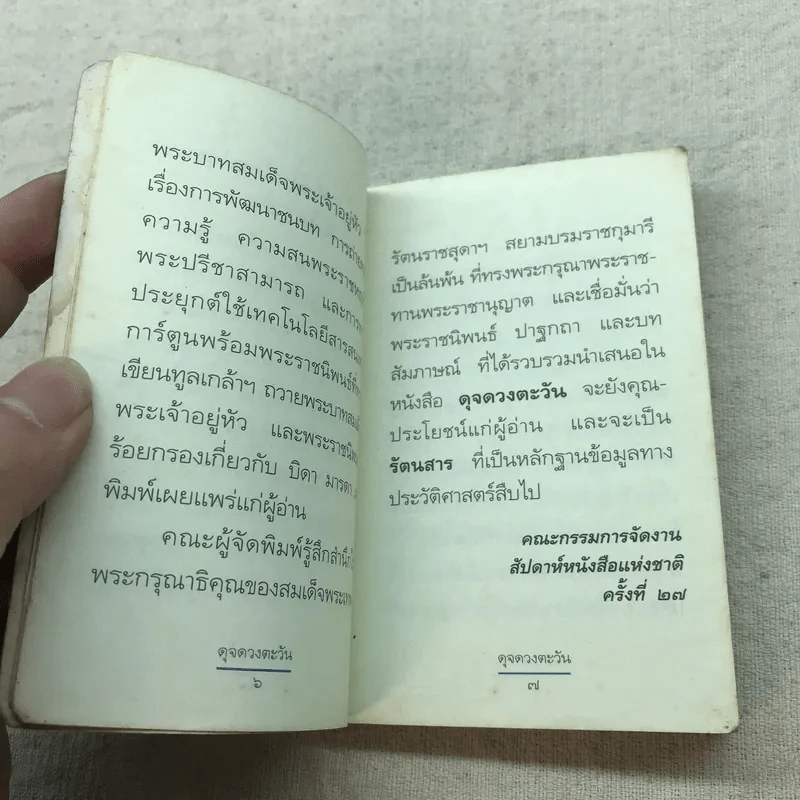 พระบาทสมเด็จพระเจ้าอยู่หัว
เรื่องการพัฒนาชนบท
ความรู้ ความสนพระราช
พระปรีชาสามารถ และการ
ประยุกต์ใช้เทคโนโลยีสารสน
การ์ตูนพร้อมพระราชนิพนธ์
เขียนทูลเกล้าฯ ถวายพระบาทสมเด็จ
พระเจ้าอยู่หัว และพระราชนิพนธ์
ร้อยกรองเกี่ยวกับ บิดา มารดา
พิมพ์เผยแพร่แก่ผู้อ่าน
คณะผู้จัดพิมพ์รู้สึกสำนึก
พระกรุณาธิคุณของสมเด็จพระเทพ
ดุจดวงตะวัน
๖
รัตนราชสุดาฯ สยามบรมราชกุมารี
เป็นล้นพ้น ที่ทรงพระกรุณาพระราช-
ทานพระราชานุญาต และเชื่อมั่นว่า
พระราชนิพนธ์ ปาฐกถา และบท
สัมภาษณ์ ที่ได้รวบรวมนำเสนอใน
หนังสือ ดุจดวงตะวัน จะยังคุณ-
ประโยชน์แก่ผู้อ่าน และจะเป็น
รัตนสาร ที่เป็นหลักฐานข้อมูลทาง
ประวัติศาสตร์สืบไป
คณะกรรมการจัดงาน
สัปดาห์หนังสือแห่งชาติ
ครั้งที่ ๒๗
ดุจดวงตะวัน
๗